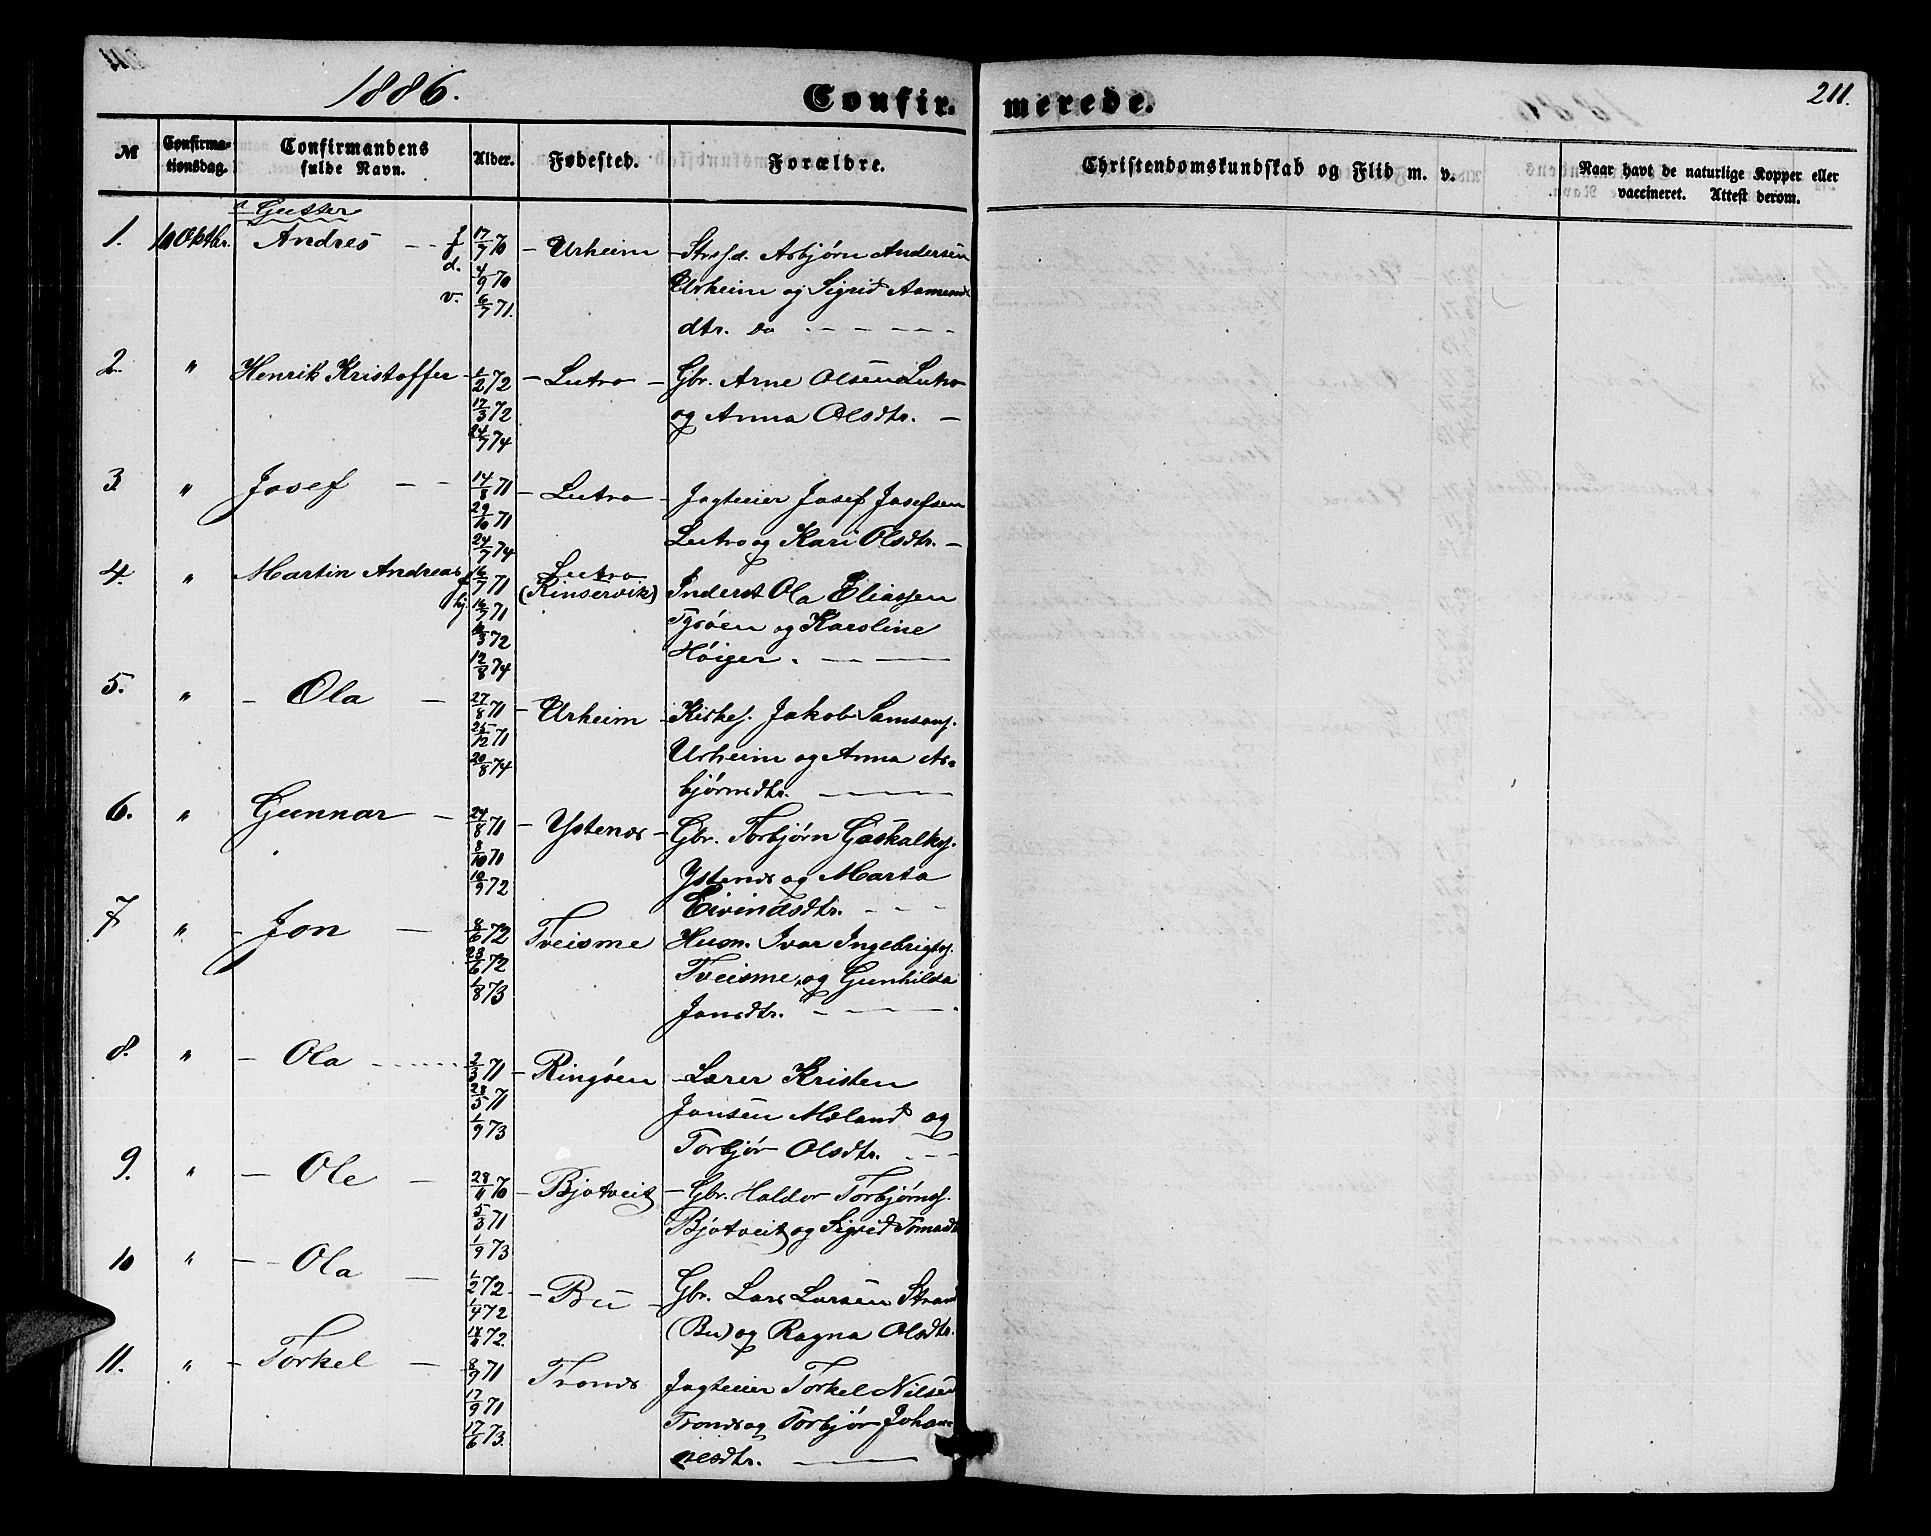 1886.
Confir-
merede.
211.
№
Confirma-
tionsdag.
Confirmandens
fulde Navn.
Alder.
Fødested.
Forældre.
Christendomskundskab og Flid m. v.
Naar havt de naturlige Kopper eller
vaccineret. Attest derom.
a Gutter
1. 10 Oktbr. Andres - - f 17/7 70 - Urheim - Strsd. Asbjørn Andersen
d. 4/9 70 Urheim og Sigrid Aamunds
v. 6/7 71. dtr. do - - - - -
2. " Henrik Kristoffer - 1/2 72 - Lutro - Gbr. Arne Olsen Lutro
17/3 72 og Anna Olsdtr. -
24/7 74
3. " Josef - - 14/8 71 - Lutro - Jagteier Josef Josefsen
29/10 71 Lutro og Kari Olsdtr. -
24/7 74
4. " Martin Andreas f 16/7 71 Lutro
(Kinservik) Inderst Ola Eliassen
hj. 16/7 71 Tysøen og Karoline
3 72 Høiger. - - -
12/8 74
5. " - Ola - 27/8 71 - Urheim - Kirkes. Jakob Samsons.
25/12 71 Urheim og Anna As-
20/8 74 bjørnsdtr. - - -
6. " Gunnar - 24/8 71 - Ystenes - Gbr. Torbjørn Gaskalks.
8/10 71 Ystenes og Marta
10/9 72 Eivindsdtr. - - -
7 " - Jon - 8/6 72 Tveisme Husm. Ivar Ingebrigts.
23/6 72 Tveisme, og Gunhilda
1/8 73 Jonsdtr. - - -
8. " - Ola - 2/3 71 - Ringøen - Lærer Kristen
28/5 71 Jonsen Mæland og
1/9 73 Torbjør Olsdtr. - - -
9. " - Ole - 28/11 70 - Bjotveit - Gbr. Haldor Torbjørns.
5/3 71 Bjotveit og Sigrid Tomasdt
1/9 73
10 " - - Ola - 1/2 72 - - Bu - Gbr. Lars Larsen Strand
1/4 72 (Bu) og Ragna Olsdtr.
72.
11. " - Torkel - 8/9 71 - Tronds Jagteier Torkel Nilsen
17/9 71 Tronds og Torbjør Johan-
17/6 73. nesdtr. - - -